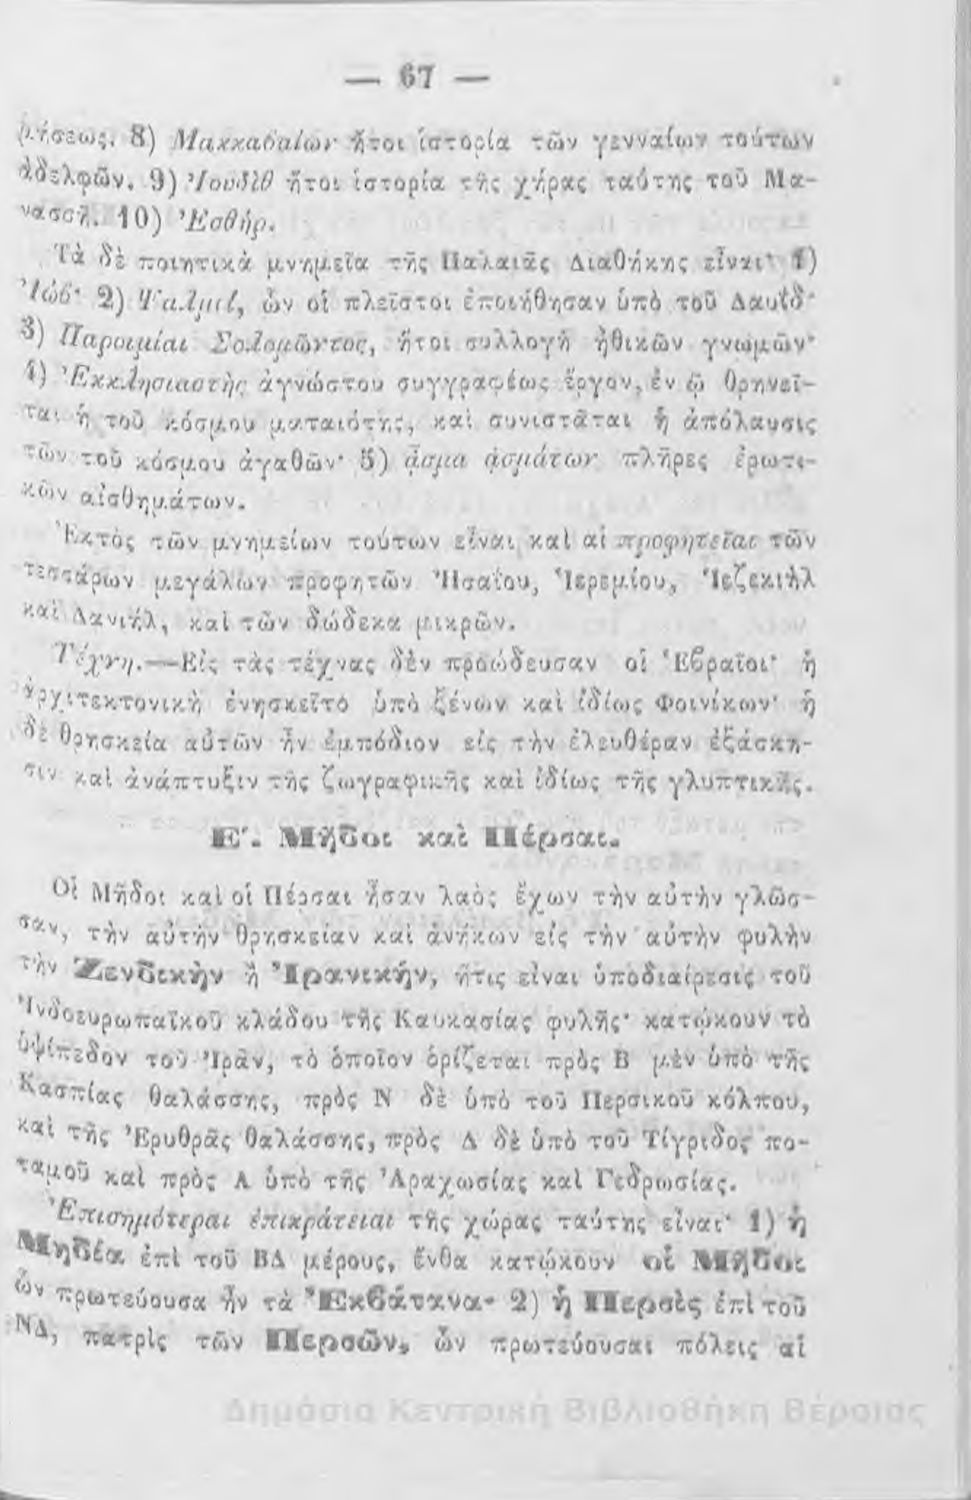 — 67 —
ρήσεως. 8) Μακκαβαίων ἤτοι ἱστορία τῶν γενναίων τούτων
ἀδελφῶν. 9) Ἰουδὶθ ἤτοι ἱστορία τῆς χήρας ταύτης τοῦ Μα-
νασσῆ. 10) Ἐσθήρ.
Τὰ δὲ ποιητικὰ μνημεῖα τῆς Παλαιᾶς Διαθήκης εἶναι· 1)
Ἰώβ· 2) Ψαλμοί, ὧν οἱ πλεῖστοι ἐποιήθησαν ὑπὸ τοῦ Δαυΐδ·
3) Παροιμίαι Σολομῶντος, ἤτοι συλλογὴ ἠθικῶν γνωμῶν·
4) Ἐκκλησιαστὴς ἀγνώστου συγγραφέως ἔργον, ἐν ᾧ θρηνεῖ-
ται ἡ τοῦ κόσμου ματαιότης, καὶ συνιστᾶται ἡ ἀπόλαυσις
τῶν τοῦ κόσμου ἀγαθῶν· 5) ᾆσμα ᾀσμάτων πλῆρες ἐρωτι-
κῶν αἰσθημάτων.
Ἐκτὸς τῶν μνημείων τούτων εἶναι καὶ αἱ προφητεῖαι τῶν
τεσσάρων μεγάλων προφητῶν Ἡσαΐου, Ἱερεμίου, Ἰεζεκιὴλ
καὶ Δανιήλ, καὶ τῶν δώδεκα μικρῶν.
Τέχνη.—Εἰς τὰς τέχνας δὲν προώδευσαν οἱ Ἑβραῖοι· ἡ
ἀρχιτεκτονικὴ ἐνησκεῖτο ὑπὸ ξένων καὶ ἰδίως Φοινίκων· ἡ
δὲ θρησκεία αὐτῶν ἦν ἐμπόδιον εἰς τὴν ἐλευθέραν ἐξάσκη-
σιν καὶ ἀνάπτυξιν τῆς ζωγραφικῆς καὶ ἰδίως τῆς γλυπτικῆς.
Ε΄. Μῆδοι καὶ Πέρσαι.
Οἱ Μῆδοι καὶ οἱ Πέρσαι ἦσαν λαὸς ἔχων τὴν αὐτὴν γλῶσ-
σαν, τὴν αὐτὴν θρησκείαν καὶ ἀνήκων εἰς τὴν αὐτὴν φυλὴν
τὴν Ζενδικὴν ἢ Ἰρανικήν, ἥτις εἶναι ὑποδιαίρεσις τοῦ
Ἰνδοευρωπαϊκοῦ κλάδου τῆς Καυκασίας φυλῆς· κατῴκουν τὸ
ὑψίπεδον τοῦ Ἰρᾶν, τὸ ὁποῖον ὁρίζεται πρὸς Β μὲν ὑπὸ τῆς
Κασπίας θαλάσσης, πρὸς Ν δὲ ὑπὸ τοῦ Περσικοῦ κόλπου,
καὶ τῆς Ἐρυθρᾶς θαλάσσης, πρὸς Δ δὲ ὑπὸ τοῦ Τίγριδος πο-
ταμοῦ καὶ πρὸς Α ὑπὸ τῆς Ἀραχωσίας καὶ Γεδρωσίας.
Ἐπισημότεραι ἐπικράτειαι τῆς χώρας ταύτης εἶναι· 1) ἡ
Μηδέα ἐπὶ τοῦ ΒΔ μέρους, ἔνθα κατῴκουν οἱ Μῆδοι
ὧν πρωτεύουσα ἦν τὰ Ἐκβάτανα· 2) ἡ Περσὶς ἐπὶ τοῦ
ΝΔ, πατρὶς τῶν Περσῶν, ὧν πρωτεύουσαι πόλεις αἱ
Δημόσια Κεντρική Βιβλιοθήκη Βέροιας